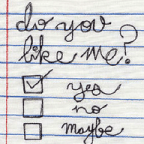 do you
like me?
yes
no
maybe